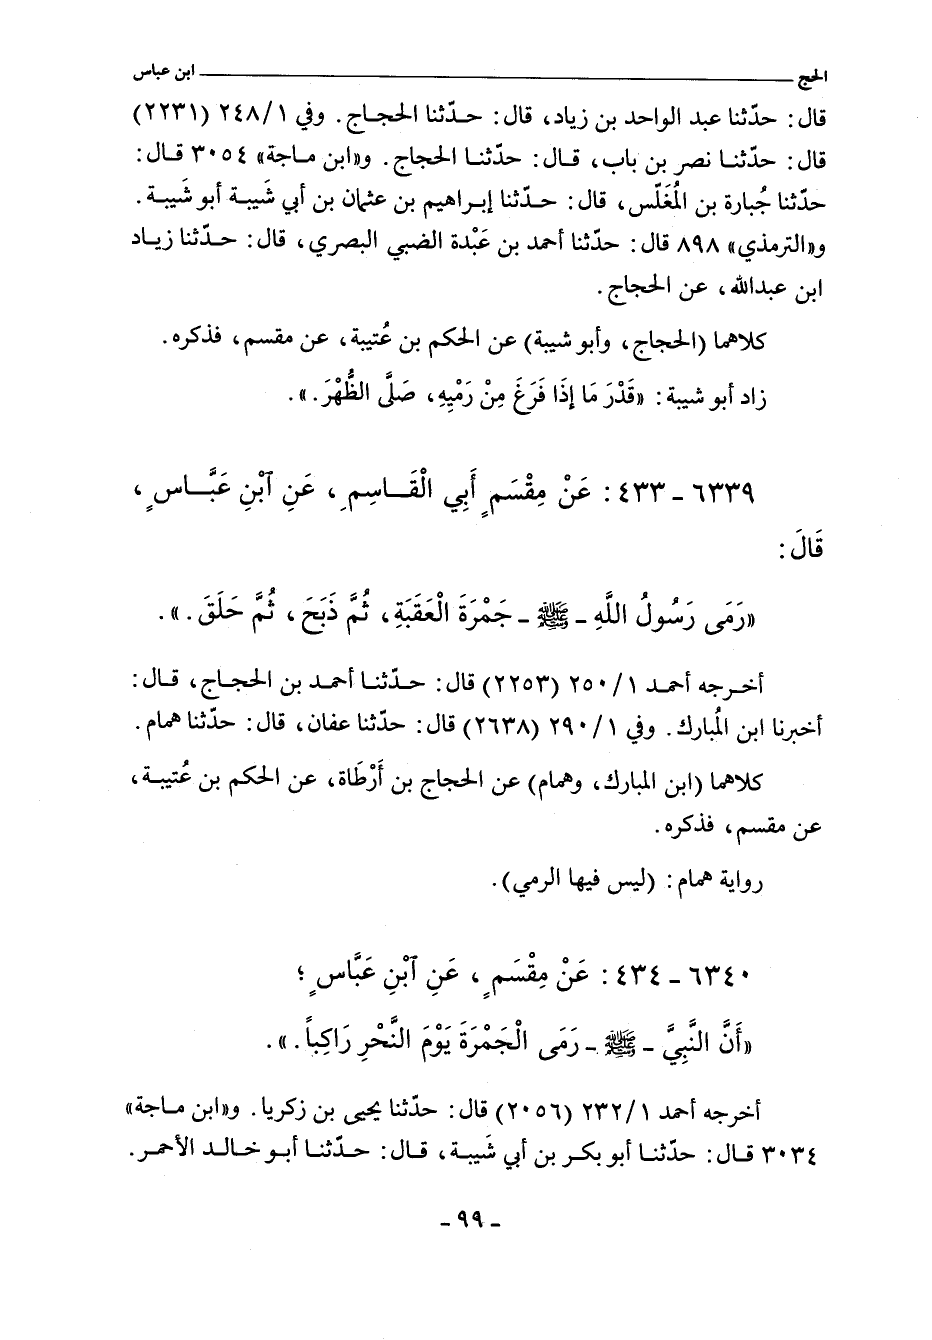 الحج ابن عباس
قال: حدّثنا عبد الواحد بن زياد، قال: حدّثنا الحجاج. وفي ٢٤٨/١ (٢٢٣١)
قال: حدّثنا نصر بن باب، قال: حدّثنا الحجاج. و«ابن ماجة» ٣٠٥٤ قال:
حدّثنا جُبارة بن المُغَلّس، قال: حدّثنا إبراهيم بن عثمان بن أبي شَيبة أبو شَيبة.
و«الترمذي» ٨٩٨ قال: حدّثنا أحمد بن عَبْدة الضبي البصري، قال: حدّثنا زياد
ابن عبدالله، عن الحجاج.
كلاهما (الحجاج، وأبو شيبة) عن الحكم بن عُتيبة، عن مقسم، فذكره.
زاد أبو شيبة: «قَدْرَ مَا إذَا فَرَغَ مِنْ رَمْيِهِ، صَلَّى الظُّهْرَ.».
٦٣٣٩ - ٤٣٣: عَنْ مِقْسَمٍ أَبِي الْقَاسِمِ، عَنِ آبْنِ عَبَّاسٍ،
قَالَ:
«رَمَى رَسُولُ اللَّهِ - ﷺ - جَمْرَةَ الْعَقَبَةِ، ثُمَّ ذَبَحَ، ثُمَّ حَلَقَ.».
أخرجه أحمد ٢٥٠/١ (٢٢٥٣) قال: حدّثنا أحمد بن الحجاج، قال:
أخبرنا ابن المُبارك. وفي ٢٩٠/١ (٢٦٣٨) قال: حدّثنا عفان، قال: حدّثنا همام.
كلاهما (ابن المبارك، وهمام) عن الحجاج بن أَرْطَاة، عن الحكم بن عُتيبة،
عن مقسم، فذكره.
رواية همام: (ليس فيها الرمي).
٦٣٤٠ - ٤٣٤: عَنْ مِقْسَمٍ، عَنِ آبْنِ عَبَّاسٍ؛
«أَنَّ النَّبِيَّ - ﷺ - رَمَى الْجَمْرَةَ يَوْمَ النَّحْرِ رَاكِباً.».
أخرجه أحمد ٢٣٢/١ (٢٠٥٦) قال: حدّثنا يحيى بن زكريا. و«ابن ماجة»
٣٠٣٤ قال: حدّثنا أبو بكر بن أبي شَيبة، قال: حدّثنا أبو خالد الأحمر.
- ٩٩ -